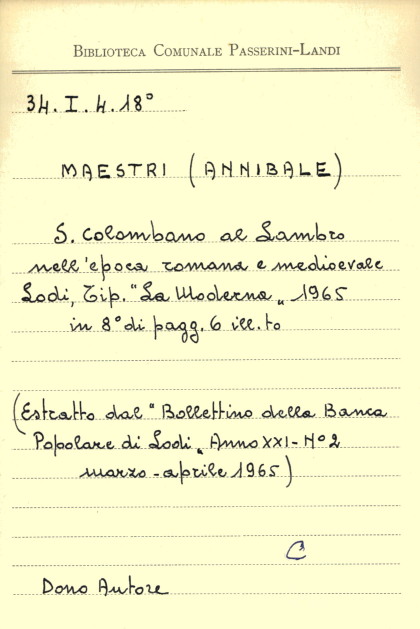 BIBLIOTECA COMUNALE PASSERINI-LANDI
34. I. 4. 18°
MAESTRI (ANNIBALE)
S. Colombano al Lambro
nell'epoca romana e medioevale
Lodi, Tip. "La Moderna„ 1965
in 8° di pagg. 6 ill.to
(Estratto dal "Bollettino della Banca
Popolare di Lodi„ Anno XXI - N° 2
marzo - aprile 1965)
Dono Autore